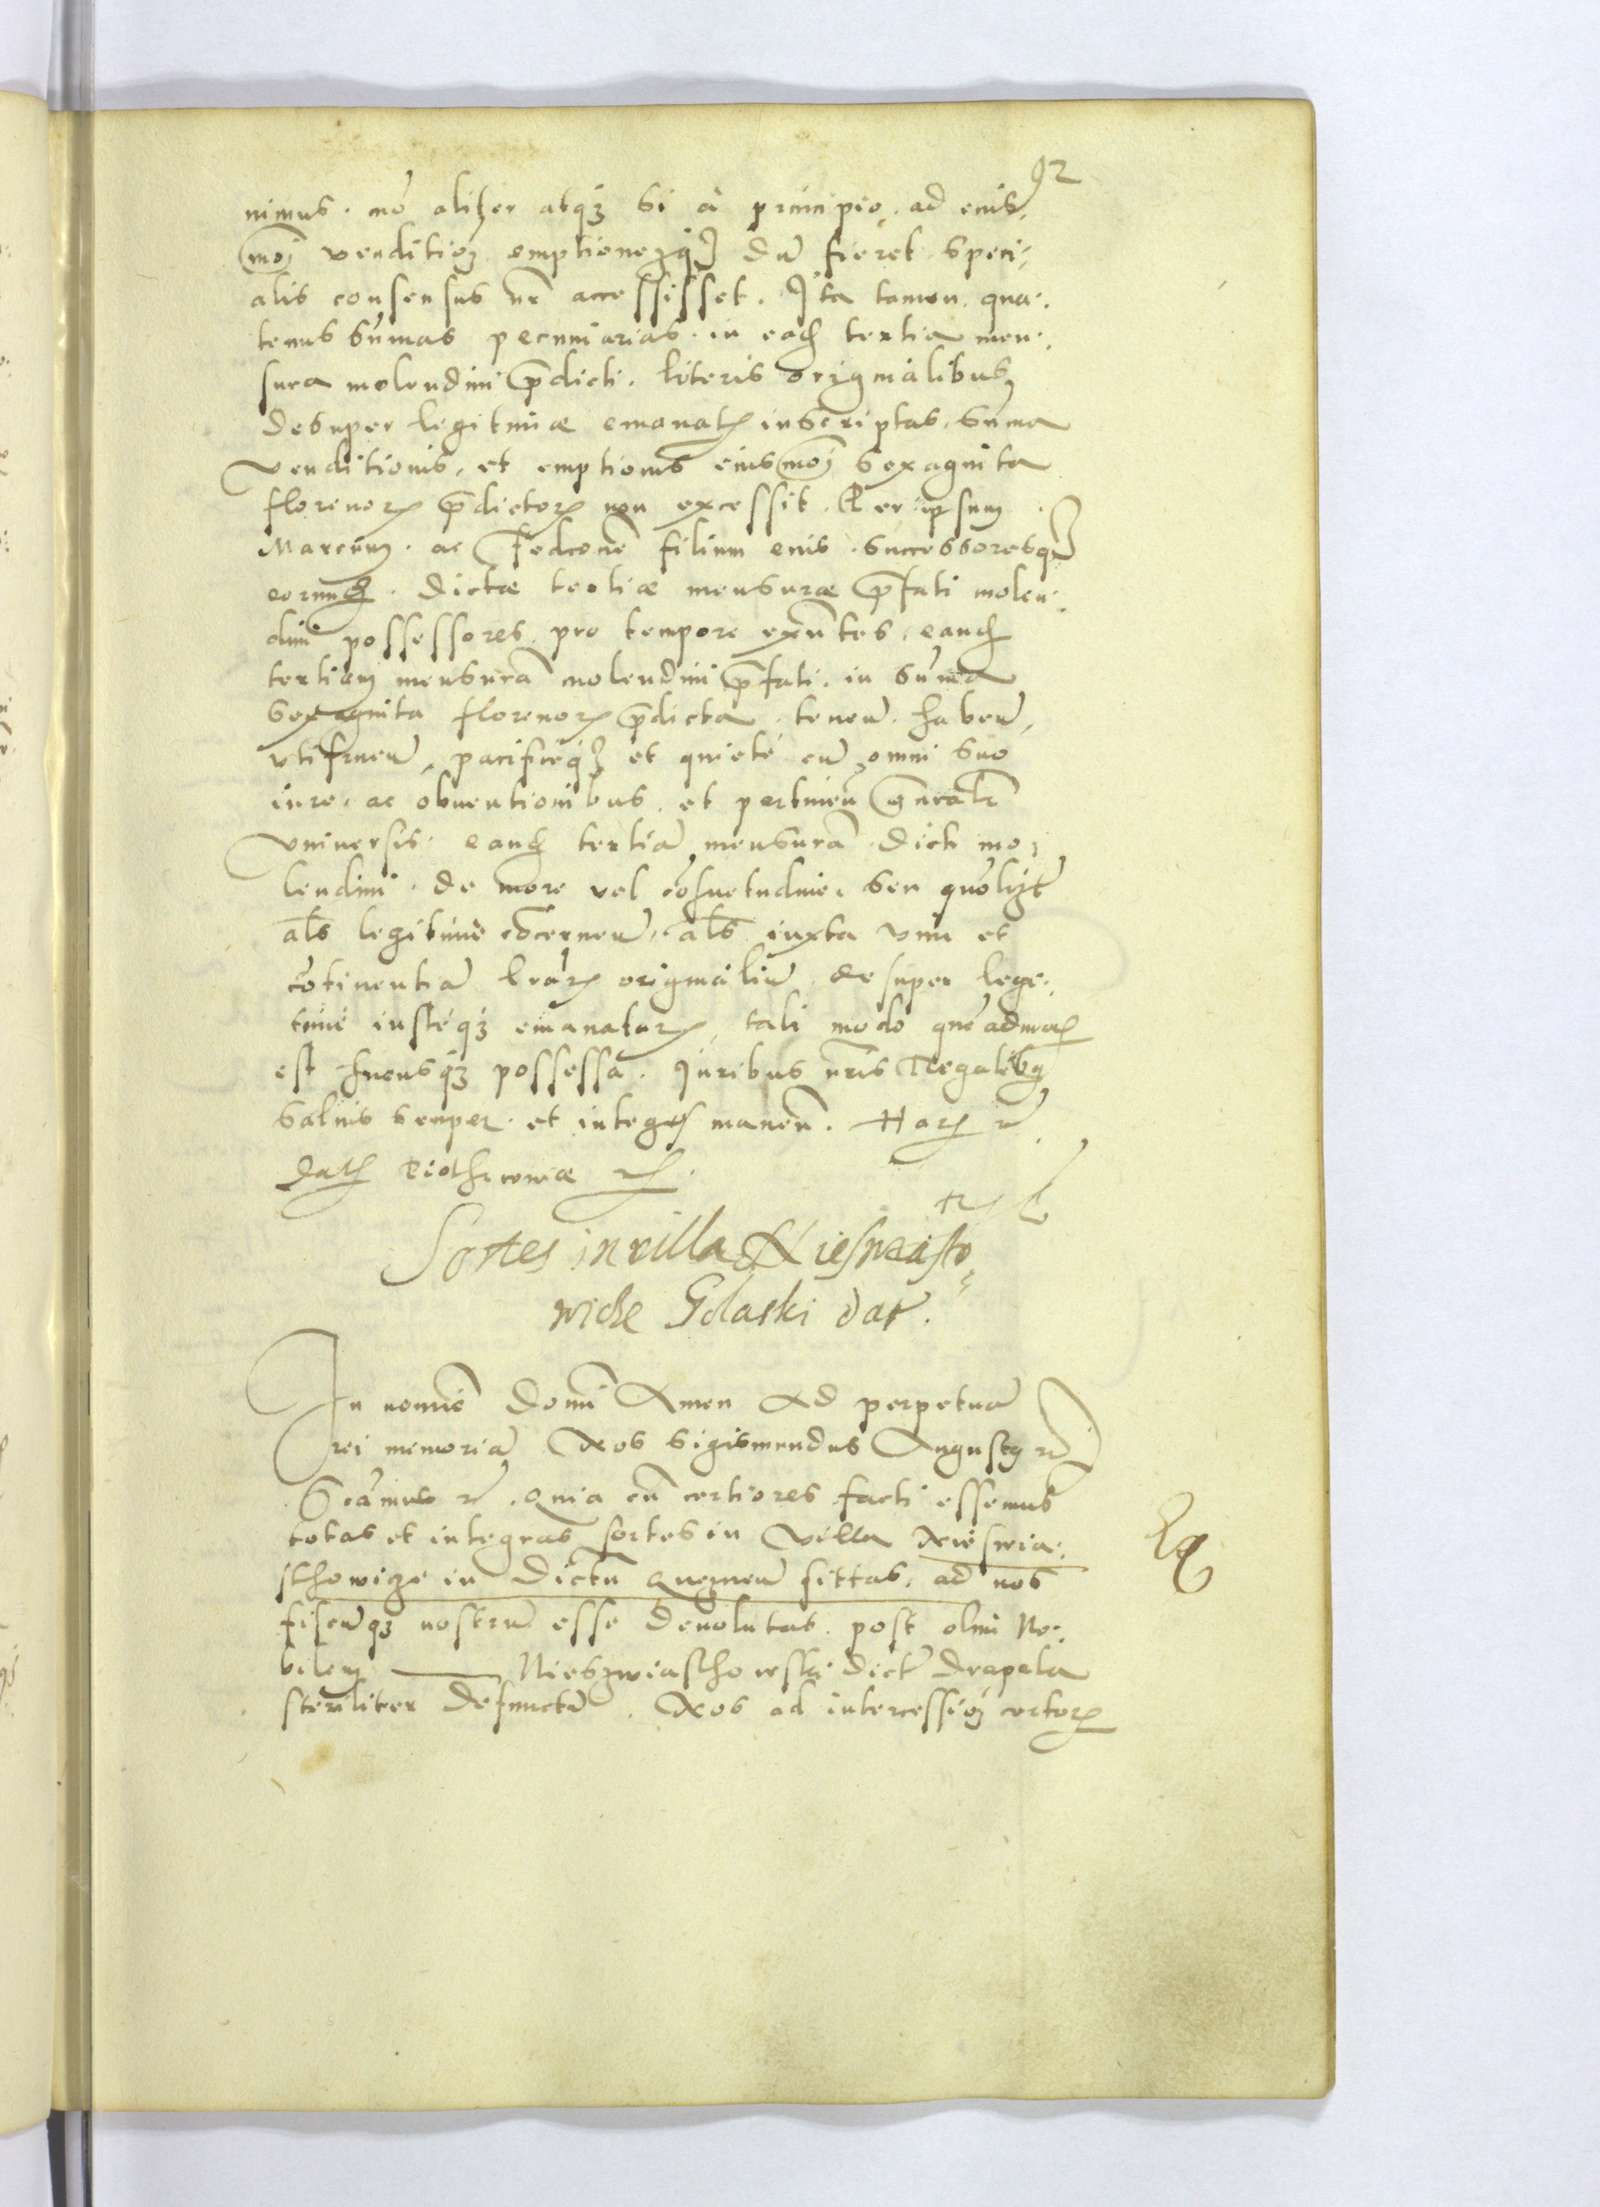 92
nimus. nō aliter atqȝ si à principio. ad eius
moī venditioȝ emptioneȝqȝ dū fieret speci-
alis consensus nr̄ accessisset. Ita tamen qua-
tenus sūmas pecuniarias. in eadȝ tertia men-
sura molendini p̄dicti. literis originalibus
desuper legitimæ emanatꝭ inscriptas, sūma
venditionis, et emptionis eiusmoī sexaginta
florenorꝭ p̄dictorꝭ non excessit. Per ipsum
Marcum. ac Fedconē filium eius. successoresqȝ
eorundȝ. dictæ tertiæ mensuræ p̄fati molen-
dini possessores pro tempore exn̄tes, eandȝ
tertiam mensurā molendini p̄fati. in sūma
sexaginta florenorꝭ p̄dicta. teneñ. habeñ,
vtifrueñ, pacificeqȝ et quietè cū omni suo
iure, ac obuentionibus. et pertineñ gn̄ralr̄
vniuersis. eandȝ tertiā mensurā dicti mo-
lendini. de more vel cōsuetudine, seu quōlizt̄
al̄s legitimè cōcerneñ, al̄s iuxta vim et
cōtinentiā lrārꝭ originaliū desuper lege-
timè iustéqȝ emanatarꝭ, tali modo quēadmoꝭ
est hucusqȝ possessa. Juribus nr̄is Regalibȝ
saluis semper. et integꝭ maneñ. Harꝭ ꝛc̄
Datꝭ Piothrcowiæ ꝛc̄.
Sortes in villa Niesviasto-
wicze Golaski dat̄.
In nomiē Domī Amen Ad perpetuā
rei memoriā Nos Sigismundus Augustȝ ꝛc̄
Scāmus ꝛc̄. Quia cū certiores facti essemus
totas et integras sortes in Villa Nieswia-
sthowize in dictū Gneznen̄ sittas, ad nos
fiscūqȝ nostrū esse deuolutas. post olim No-
bilem ——— Nieszwiasthowski dict̄ Drapala
steriliter defunctū. Nos ad intercessioȝ certorꝭ